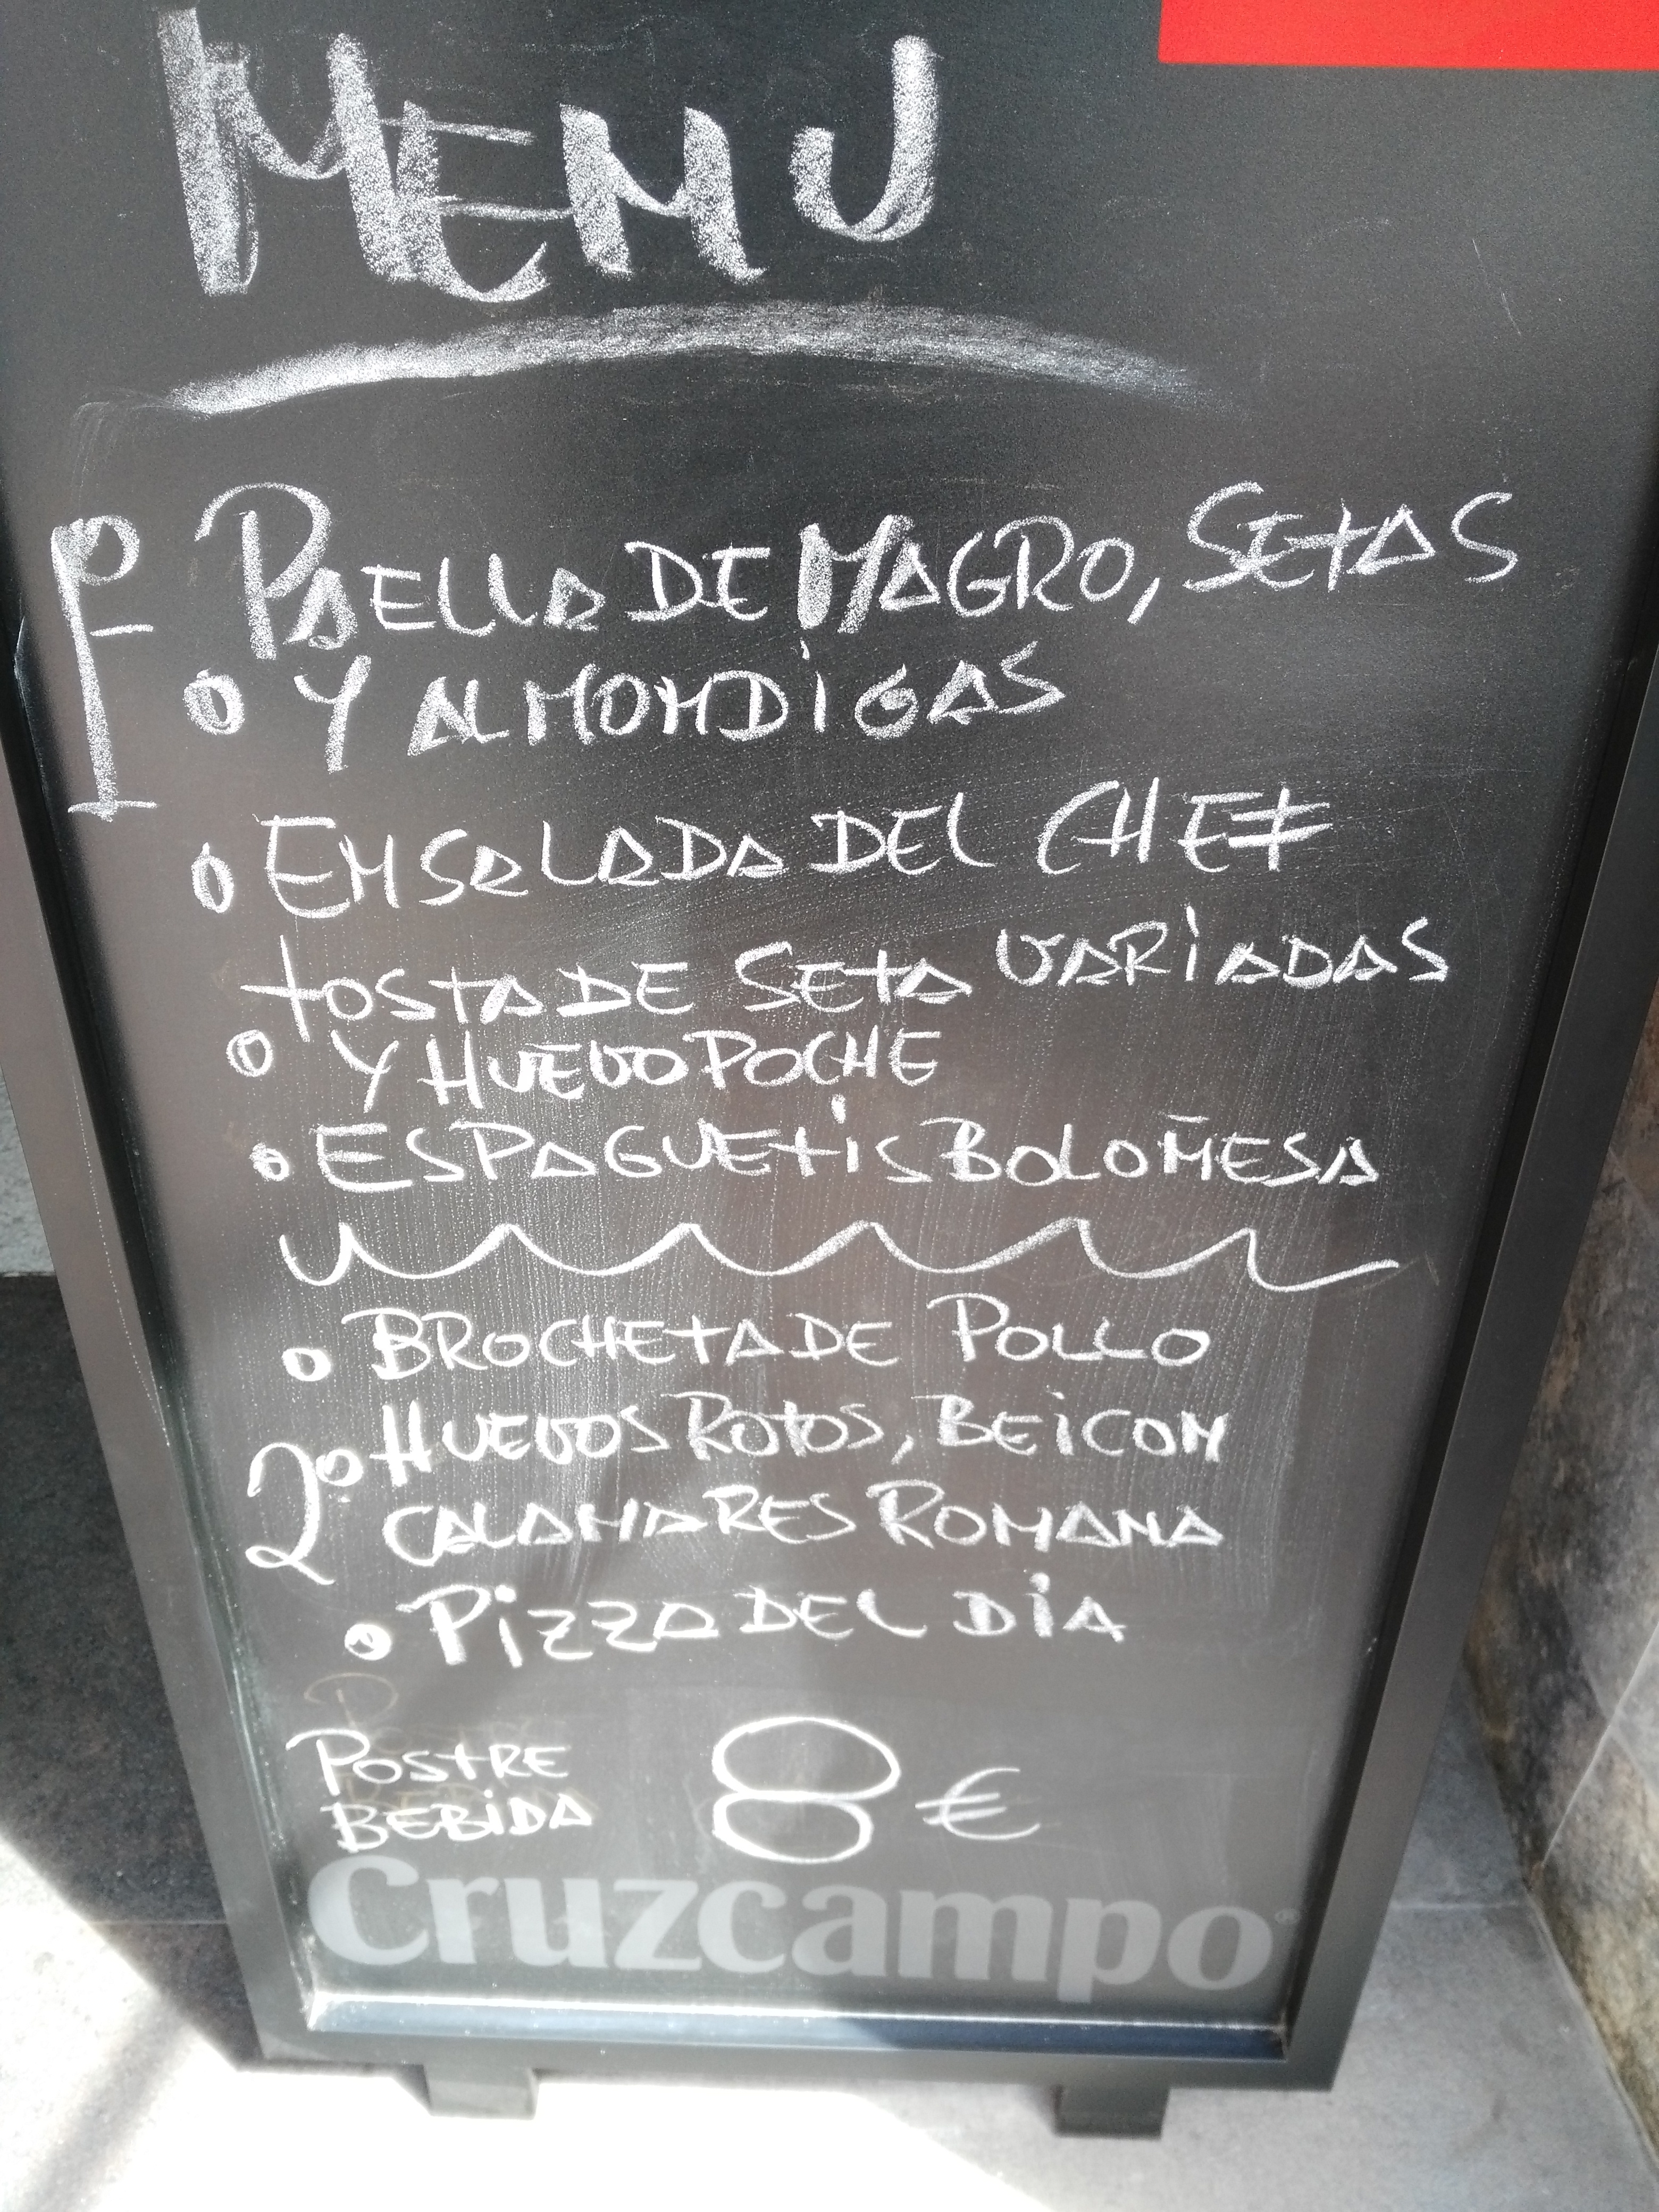 MENU
1º PAELLA DE MAGRO, SETAS
Y ALMONDIGAS
ENSALADA DEL CHEF
TOSTA DE SETA VARIADAS
Y HUEVO POCHE
ESPAGUETIS BOLOÑESA
BROCHETA DE POLLO
2º HUEVOS ROTOS, BEICON
CALAMARES ROMANA
PIZZA DEL DIA
POSTRE
BEBIDA 8 €
Cruzcampo